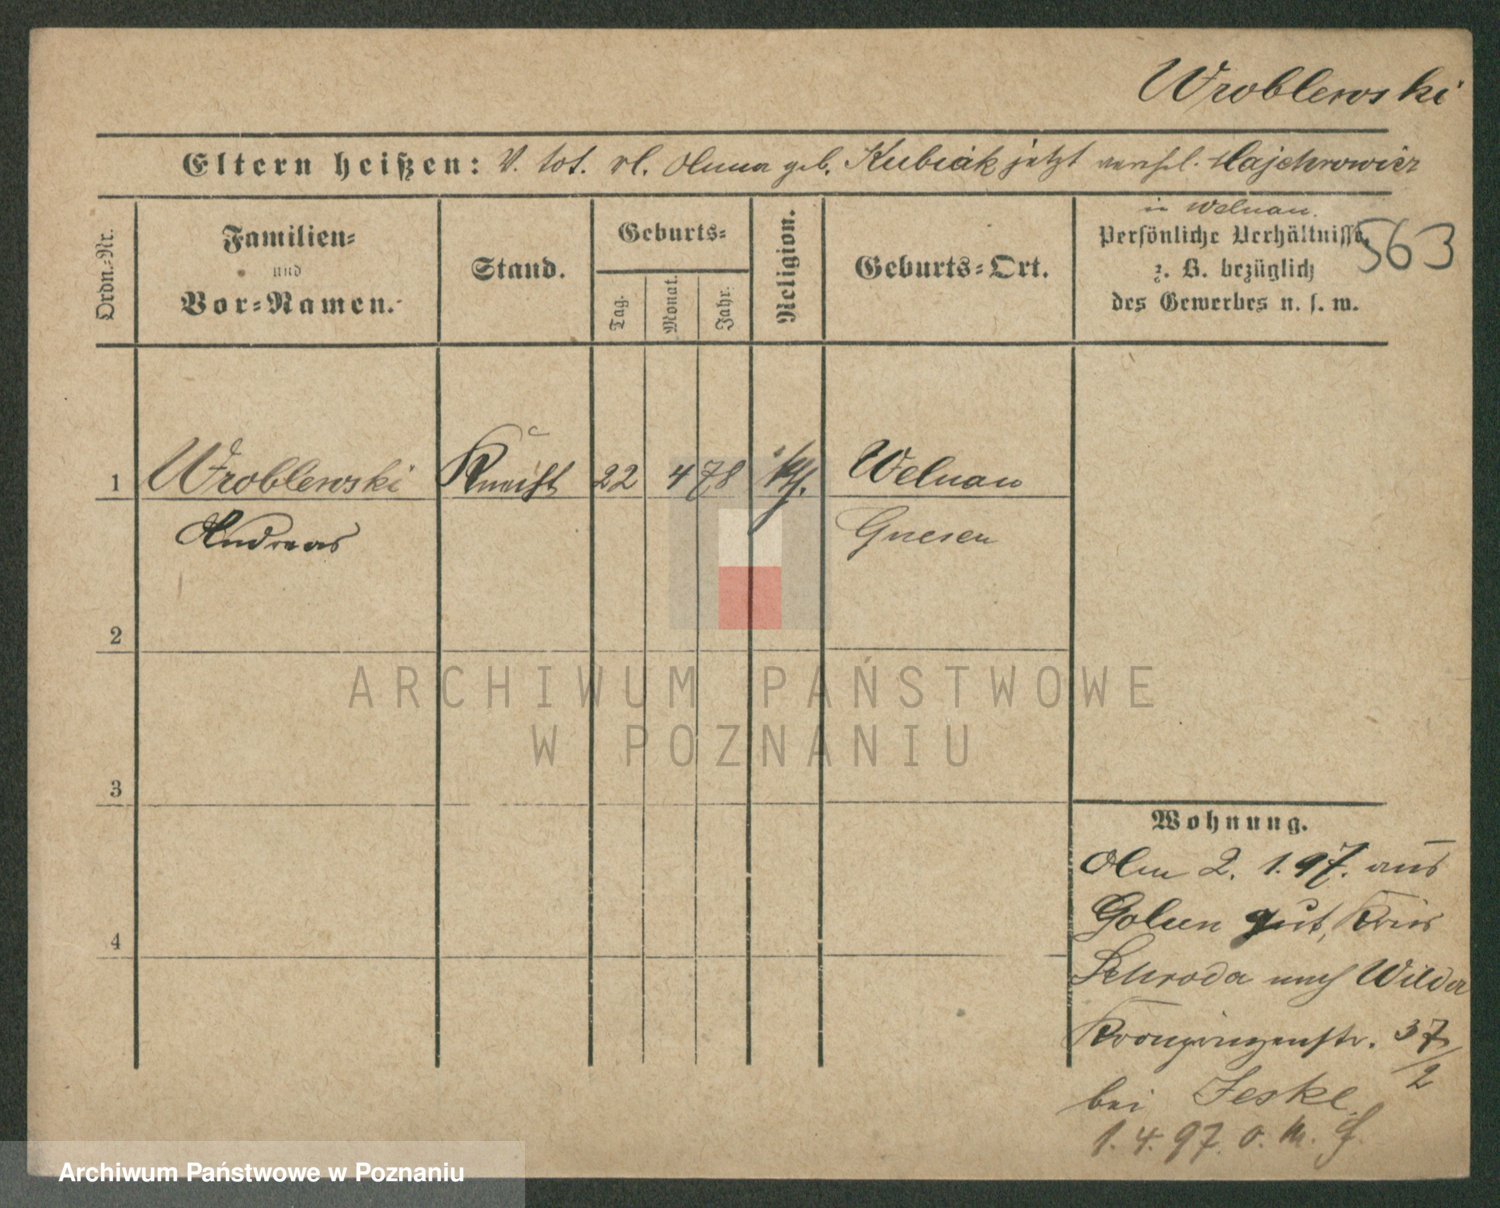 Wroblewski
Eltern heißen: V. tot. M. Anna geb. Kubiak jetzt verehl. Majchrowicz
in Welnau.
563
Ordn.-Nr.
Familien-
und
Vor-Namen.
Stand.
Geburts-
Tag.
Monat.
Jahr.
Religion.
Geburts-Ort.
Persönliche Verhältnisse,
z. B. bezüglich
des Gewerbes u. s. w.
1 Wroblewski Knecht 22 4 78 kth. Welnau
Andreas Gnesen
2
3
4
Wohnung.
Am 2. 1. 97. aus
Golun gut, Kreis
Schroda nach Wilda
Kronprinzenstr. 37/2
bei Jeske.
1. 4. 97. o.
ARCHIWUM PAŃSTWOWE
W POZNANIU
Archiwum Państwowe w Poznaniu